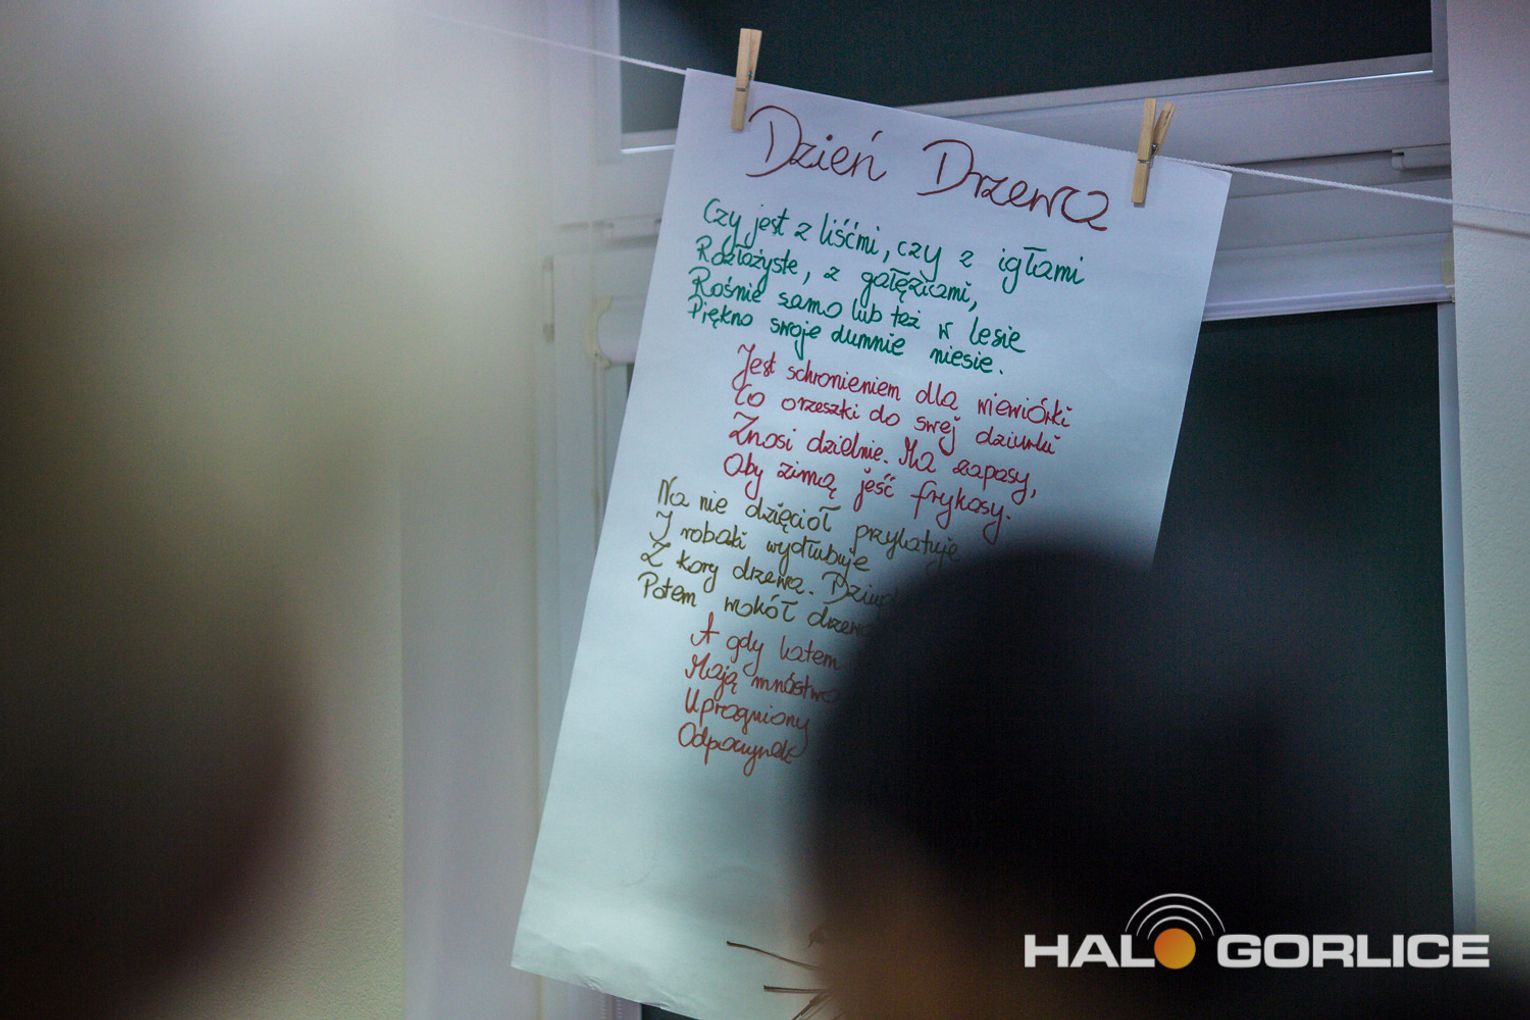 Dzień Drzewa
Czy jest z liśćmi, czy z igłami
Rozłożyste, z gałęziami,
Rośnie samo lub też w lesie
Piękno swoje dumnie niesie.
Jest schronieniem dla wiewiórki
Co orzeszki do swej dziurki
Znosi dzielnie. Ma zapasy,
Aby zimą jeść frykasy.
Na nie dzięcioł przylatuje
I robaki wydłubuje
Z kory drzewa.
Potem wokół
A gdy latem
Mają mnóstwo
Upragniony
Odpoczynek
HALO GORLICE